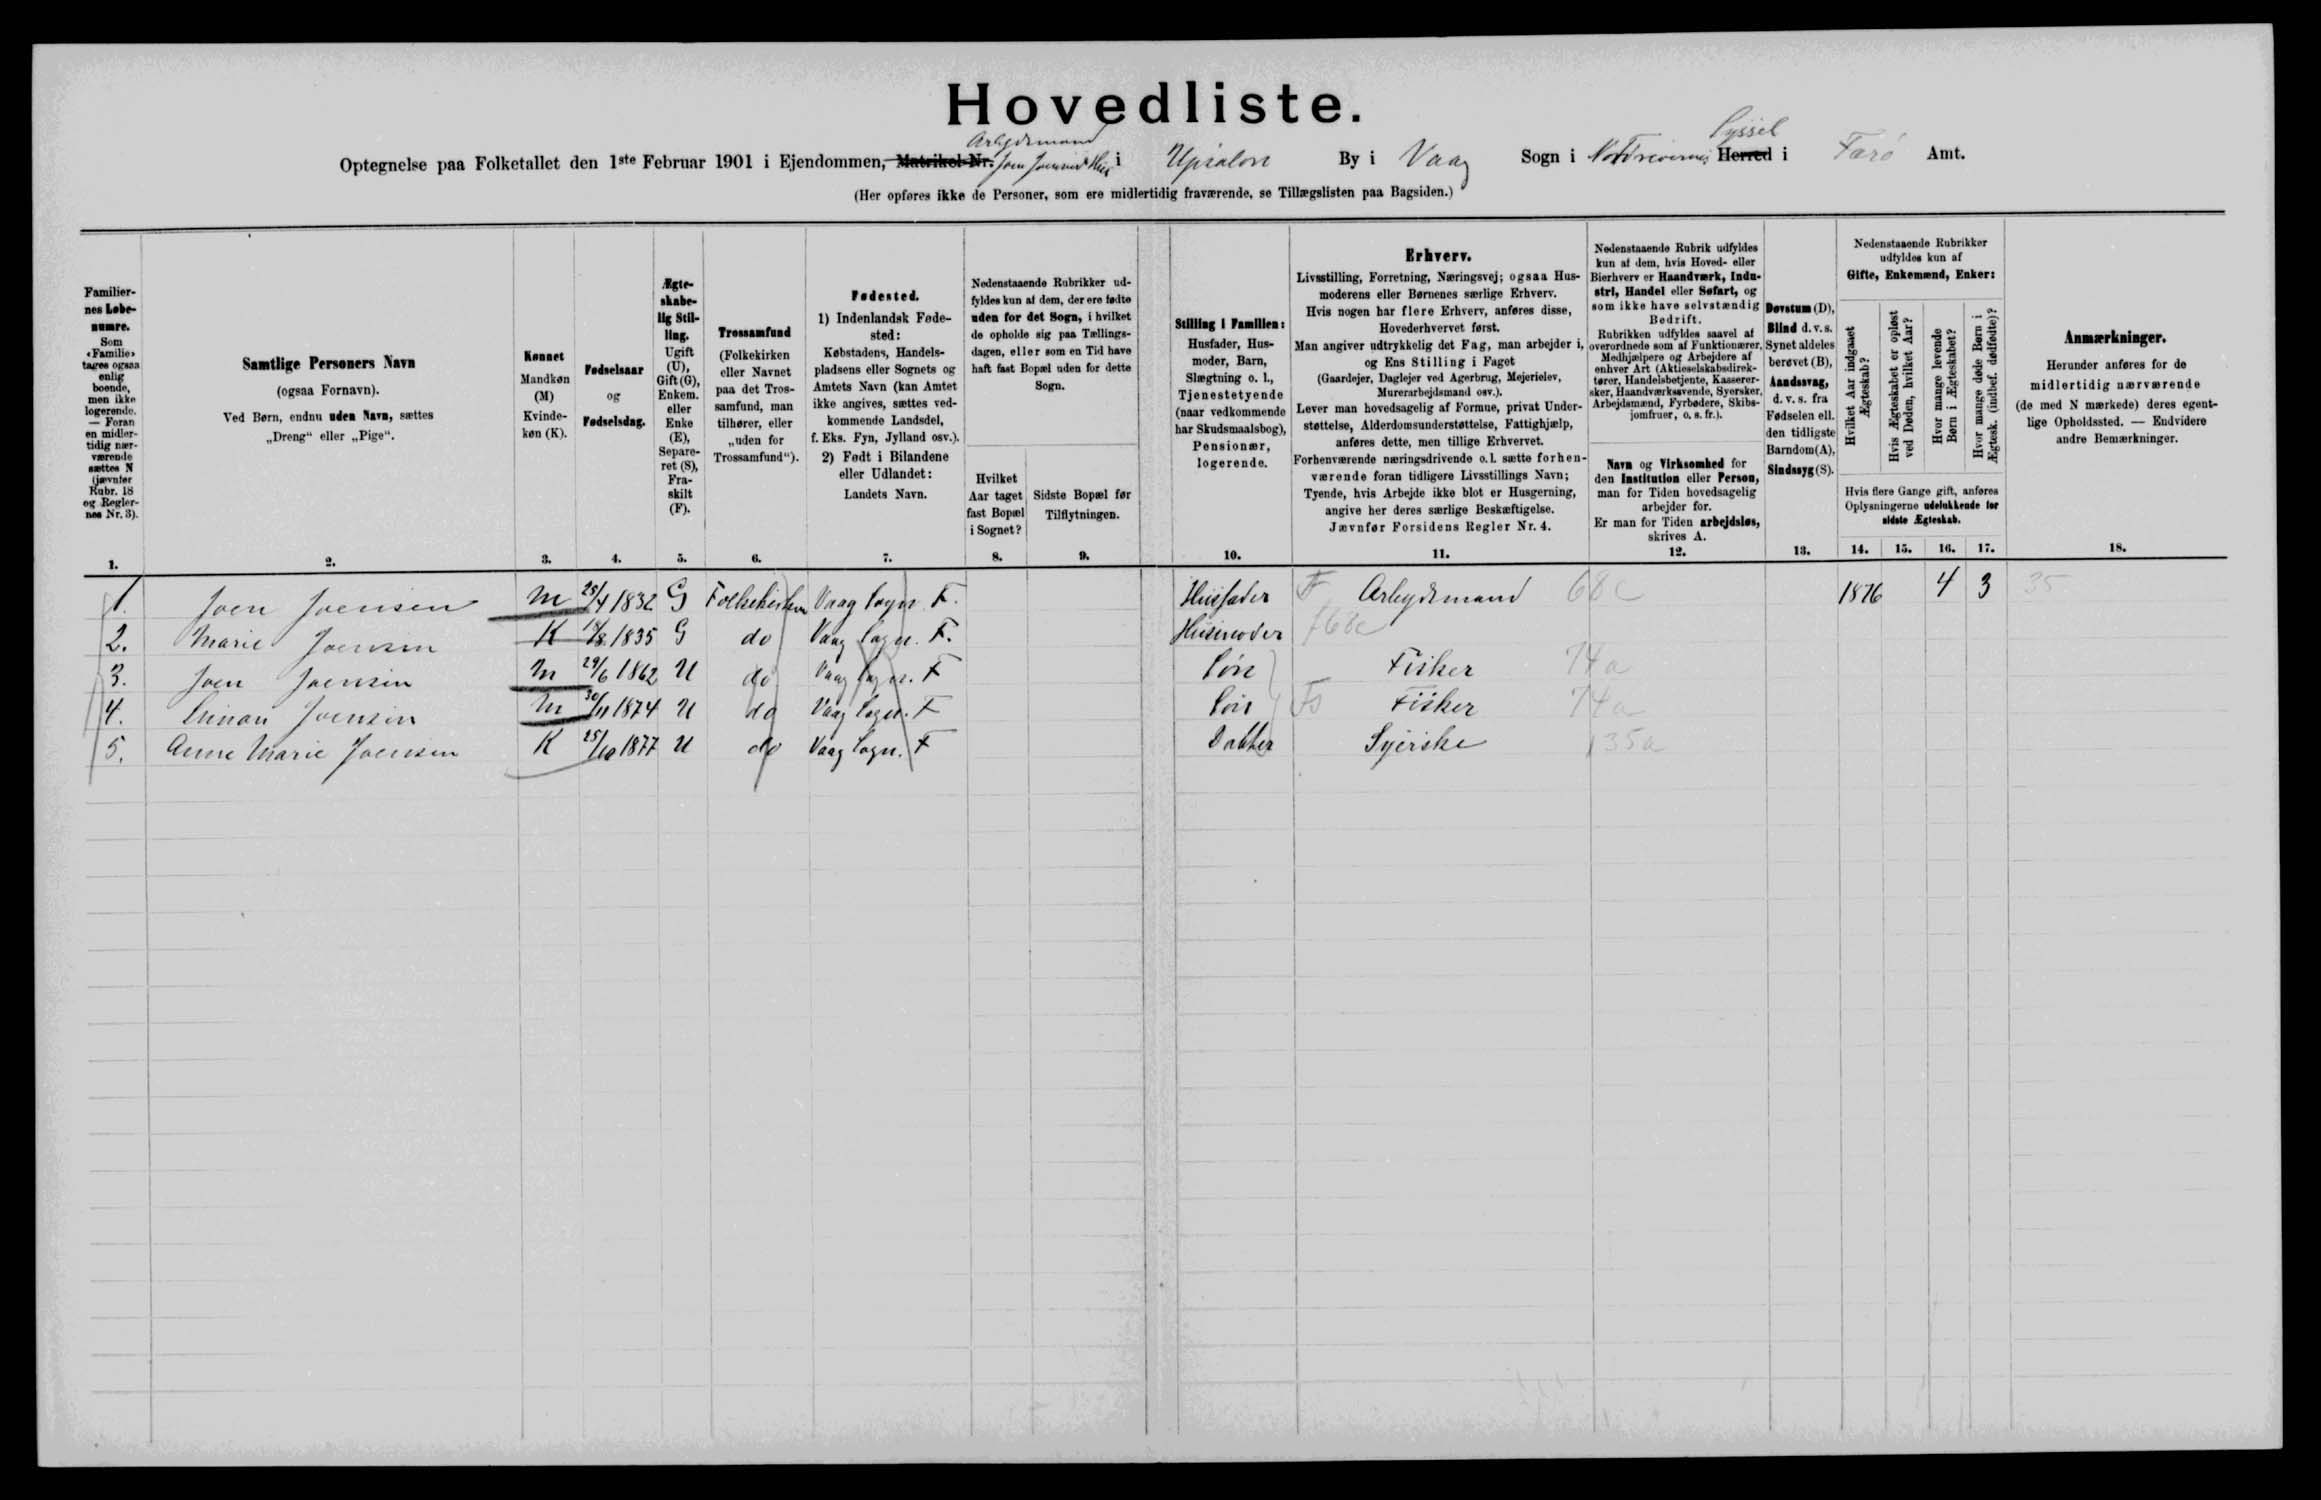 Hovedliste.
Arbejdsmand Syssel
Optegnelse paa Folketallet den 1ste Februar 1901 i Ejendommen, Matrikel-Nr. Joen Joensens Hus i Upsalon By i Vaag Sogn i Herred i Færø Amt.
(Her opføres ikke de Personer, som ere midlertidig fraværende, se Tillægslisten paa Bagsiden.)
Familiernes Løbenumre.
Som
«Familie»
tages ogsaa
enlig
boende,
men ikke
logerende.
— Foran
en midlertidig nærværende
sættes N
(jævnfør
Rubr. 18
og Reglernes Nr. 3).
1.
Samtlige Personers Navn
(ogsaa Fornavn).
Ved Børn, endnu uden Navn, sættes
„Dreng“ eller „Pige“.
2.
Kønnet
Mandkøn
(M)
Kvindekøn (K).
3.
Fødselsaar
og
Fødselsdag.
4.
Ægteskabelig Stilling.
Ugift
(U),
Gift (G),
Enkem.
eller
Enke
(E),
Separeret (S),
Fraskilt
(F).
5.
Trossamfund
(Folkekirken
eller Navnet
paa det Trossamfund, man
tilhører, eller
„uden for
Trossamfund“).
6.
Fødested.
1) Indenlandsk Fødested:
Købstadens, Handelspladsens eller Sognets og
Amtets Navn (kan Amtet
ikke angives, sættes vedkommende Landsdel,
f. Eks. Fyn, Jylland osv.).
2) Født i Bilandene
eller Udlandet:
Landets Navn.
7.
Nedenstaaende Rubrikker udfyldes kun af dem, der ere fødte
uden for det Sogn, i hvilket
de opholde sig paa Tællingsdagen, eller som en Tid have
haft fast Bopæl uden for dette
Sogn.
Hvilket
Aar taget
fast Bopæl
i Sognet?
8.
Sidste Bopæl før
Tilflytningen.
9.
Stilling i Familien:
Husfader, Husmoder, Barn,
Slægtning o. l.,
Tjenestetyende
(naar vedkommende
har Skudsmaalsbog),
Pensionær,
logerende.
10.
Erhverv.
Livsstilling, Forretning, Næringsvej; ogsaa Husmoderens eller Børnenes særlige Erhverv.
Hvis nogen har flere Erhverv, anføres disse,
Hovederhvervet først.
Man angiver udtrykkelig det Fag, man arbejder i,
og Ens Stilling i Faget
(Gaardejer, Daglejer ved Agerbrug, Mejerielev,
Murerarbejdsmand osv.).
Lever man hovedsagelig af Formue, privat Understøttelse, Alderdomsunderstøttelse, Fattighjælp,
anføres dette, men tillige Erhvervet.
Forhenværende næringsdrivende o. l. sætte forhenværende foran tidligere Livsstillings Navn;
Tyende, hvis Arbejde ikke blot er Husgerning,
angive her deres særlige Beskæftigelse.
Jævnfør Forsidens Regler Nr. 4.
11.
Nedenstaaende Rubrik udfyldes
kun af dem, hvis Hoved- eller
Bierhverv er Haandværk, Industri, Handel eller Søfart, og
som ikke have selvstændig
Bedrift.
Rubrikken udfyldes saavel af
overordnede som af Funktionærer,
Medhjælpere og Arbejdere af
enhver Art (Aktieselskabsdirektører, Handelsbetjente, Kasserersker, Haandværkssvende, Syersker,
Arbejdsmænd, Fyrbødere, Skibsjomfruer, o. s. fr.).
Navn og Virksomhed for
den Institution eller Person,
man for Tiden hovedsagelig
arbejder for.
Er man for Tiden arbejdsløs,
skrives A.
12.
Døvstum (D),
Blind d. v. s.
Synet aldeles
berøvet (B),
Aandssvag,
d. v. s. fra
Fødselen ell.
den tidligste
Barndom (A),
Sindssyg (S).
13.
Nedenstaaende Rubrikker
udfyldes kun af
Gifte, Enkemænd, Enker:
Hvilket Aar indgaaet Ægteskab?
Hvis Ægteskabet er opløst ved Døden, hvilket Aar?
Hvor mange levende Børn i Ægteskabet?
Hvor mange døde Børn i Ægtesk. (indbef. dødfødte)?
Hvis flere Gange gift, anføres
Oplysningerne udelukkende for
sidste Ægteskab.
14. 15. 16. 17.
Anmærkninger.
Herunder anføres for de
midlertidig nærværende
(de med N mærkede) deres egentlige Opholdssted. — Endvidere
andre Bemærkninger.
18.
1. Joen Joensen M 25/4 1832 G Folkekirken Vaag Sogn F. Husfader F Arbejdsmand 68c 1876 4 3 35
2. Marie Joensen K 1835 G do Vaag Sogn. F. Husmoder f68c
3. Joen Joensen M 29/6 1862 U do Vaag Sogn. F Søn Fisker 74a
4. Joensen M 30/11 1874 U do Vaag Sogn. F Søn Fs Fisker 74a
5. Anne Marie Joensen K 25/10 1877 U do Vaag Sogn. F Datter Syerske 135a